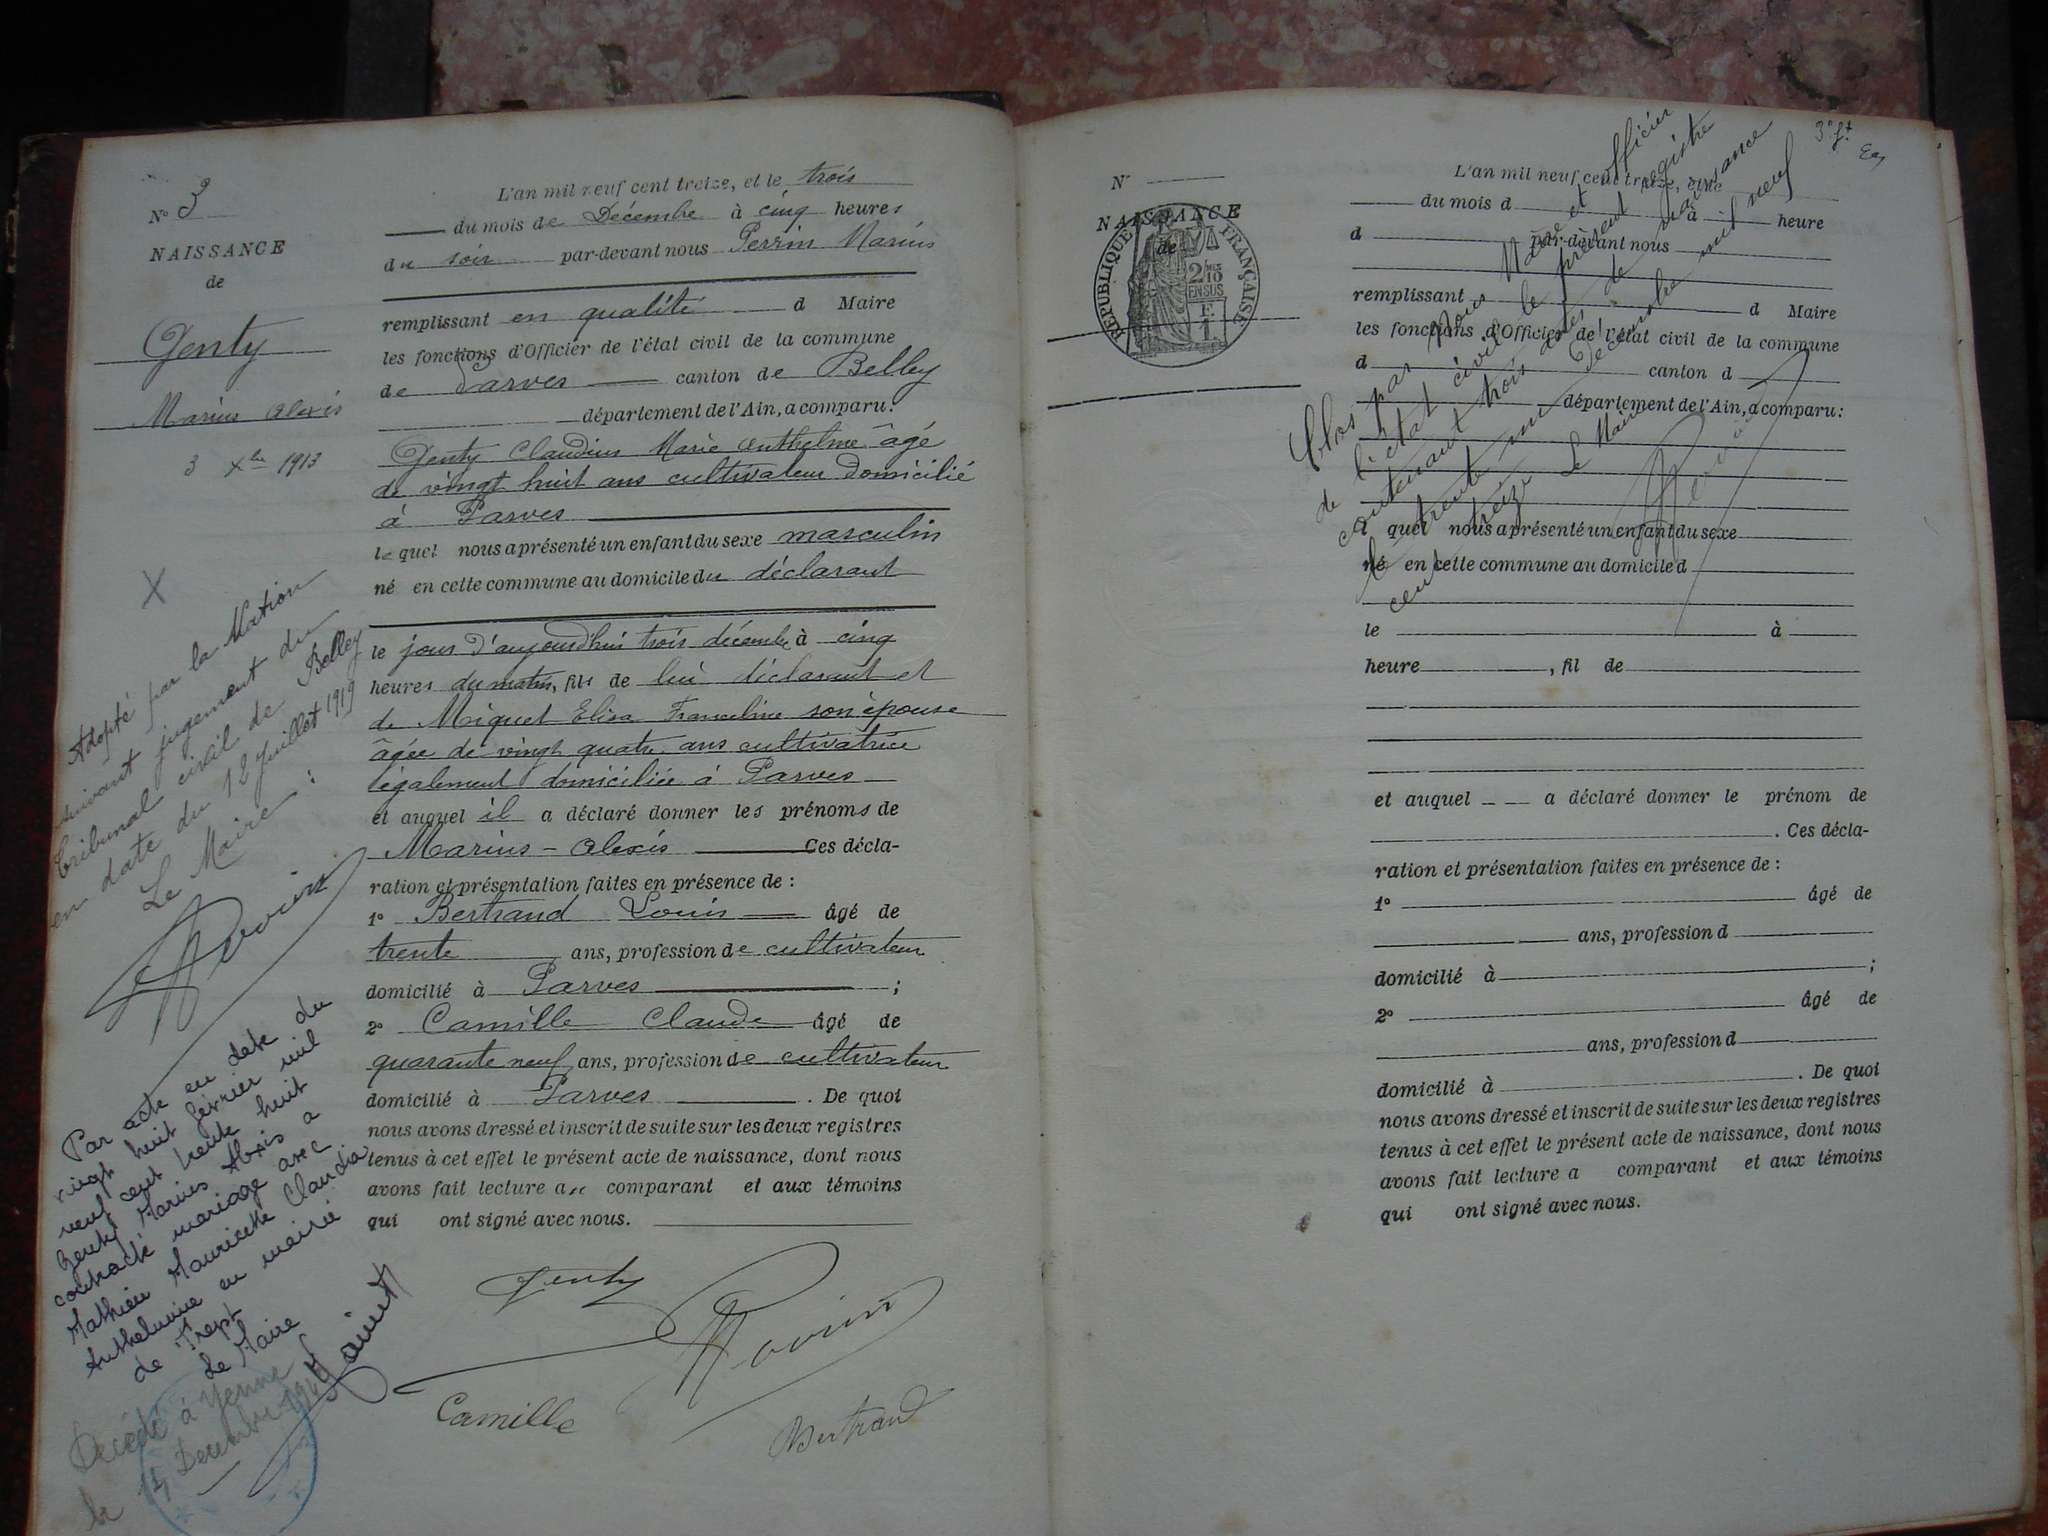 N° 3
NAISSANCE
de
Genty
Marius Alexis
3 Xbre 1913
L'an mil neuf cent treize, et le trois
du mois de Décembre à cinq heures
du soir par-devant nous Perrin Marius
remplissant en qualité d Maire
les fonctions d'Officier de l'état civil de la commune
de Parves canton de Belley
département de l'Ain, a comparu:
Genty Claudius Marie Anthelme âgé
de vingt huit ans cultivateur domicilié
à Parves
le quel nous a présenté un enfant du sexe masculin
né en cette commune au domicile du déclarant
le jour d'aujourd'hui trois décembre à cinq
heures du matin, fils de lui déclarant et
de Miguet Elisa Franceline son épouse
âgée de vingt quatre ans cultivatrice
légalement domiciliée à Parves
et auquel il a déclaré donner les prénoms de
Marius-Alexis Ces décla-
ration et présentation faites en présence de :
1° Bertrand Louis âgé de
trente ans, profession de cultivateur
domicilié à Parves ;
2° Camille Claude âgé de
quarante neuf ans, profession de cultivateur
domicilié à Parves . De quoi
nous avons dressé et inscrit de suite sur les deux registres
tenus à cet effet le présent acte de naissance, dont nous
avons fait lecture au comparant et aux témoins
qui ont signé avec nous.
Genty
Perrin
Camille
Bertrand
X
Adopté par la Nation
suivant jugement du
tribunal civil de Belley
en date du 12 juillet 1919
Le Maire :
Perrin
Par acte en date du
vingt huit février mil
neuf cent trente huit
Genty Marius Alexis a
contracté mariage avec
Mathieu Mauricette Claudia
Anthelmine en mairie
de Trept
Le Maire
Décédé à Yenne
le Decembre
N°
NAISSANCE
de
RÉPUBLIQUE FRANÇAISE
2/10
EN SUS
1 F.
3e ft
L'an mil neuf cent treize, et le
du mois d à heure
d par-devant nous
remplissant d Maire
les fonctions d'Officier de l'état civil de la commune
d canton d
département de l'Ain, a comparu:
l quel nous a présenté un enfant du sexe
né en cette commune au domicile d
le à
heure , fil de
et auquel a déclaré donner le prénom de
. Ces décla-
ration et présentation faites en présence de :
1° âgé de
ans, profession d
domicilié à ;
2° âgé de
ans, profession d
domicilié à . De quoi
nous avons dressé et inscrit de suite sur les deux registres
tenus à cet effet le présent acte de naissance, dont nous
avons fait lecture a comparant et aux témoins
qui ont signé avec nous.
Clos par Nous Maire et officier
de l'état civil le présent registre
contenant trois actes de naissance
le trente un Décembre mil neuf
cent treize Le Maire
Perrin